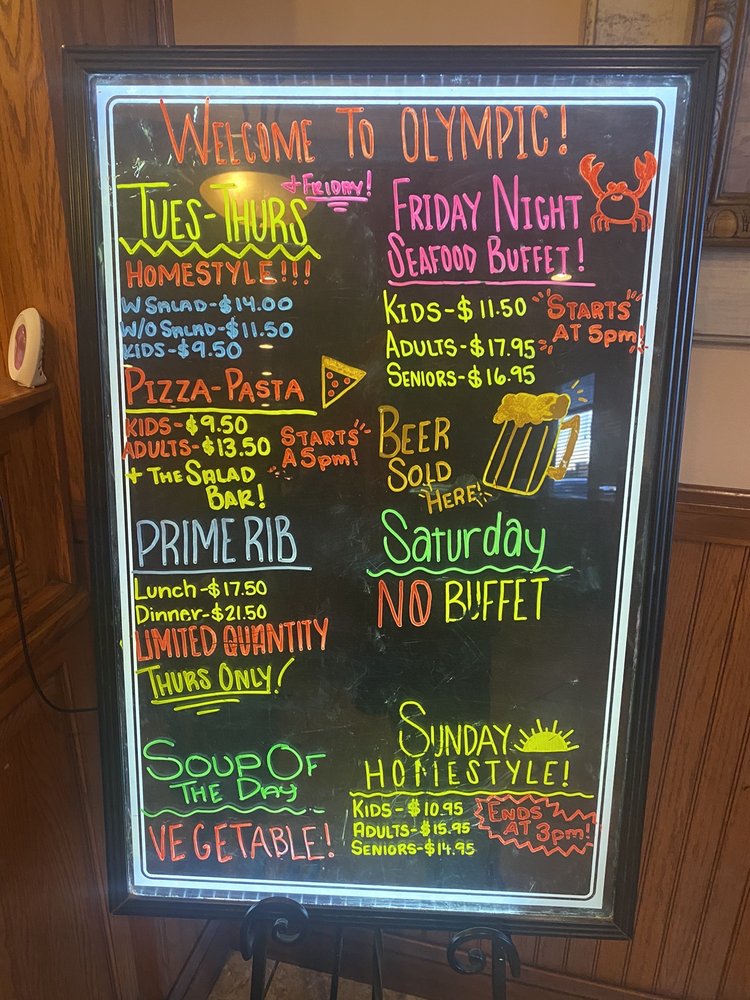 WELCOME TO OLYMPIC!
TUES-THURS
+ FRIDAY!
HOMESTYLE!!!
W SALAD-$14.00
W/O SALAD-$11.50
KIDS-$9.50
PIZZA-PASTA
KIDS-$9.50
ADULTS-$13.50
+ THE SALAD
BAR!
STARTS
A 5pm!
PRIME RIB
Lunch-$17.50
Dinner-$21.50
LIMITED QUANTITY
THURS ONLY!
SOUP OF
THE DAY
VEGETABLE!
FRIDAY NIGHT
SEAFOOD BUFFET!
KIDS-$11.50
ADULTS-$17.95
SENIORS-$16.95
"STARTS"
AT 5pm!
BEER
SOLD
HERE!
Saturday
NO BUFFET
SUNDAY
HOMESTYLE!
KIDS-$10.95
ADULTS-$15.95
SENIORS-$14.95
ENDS
AT 3pm!